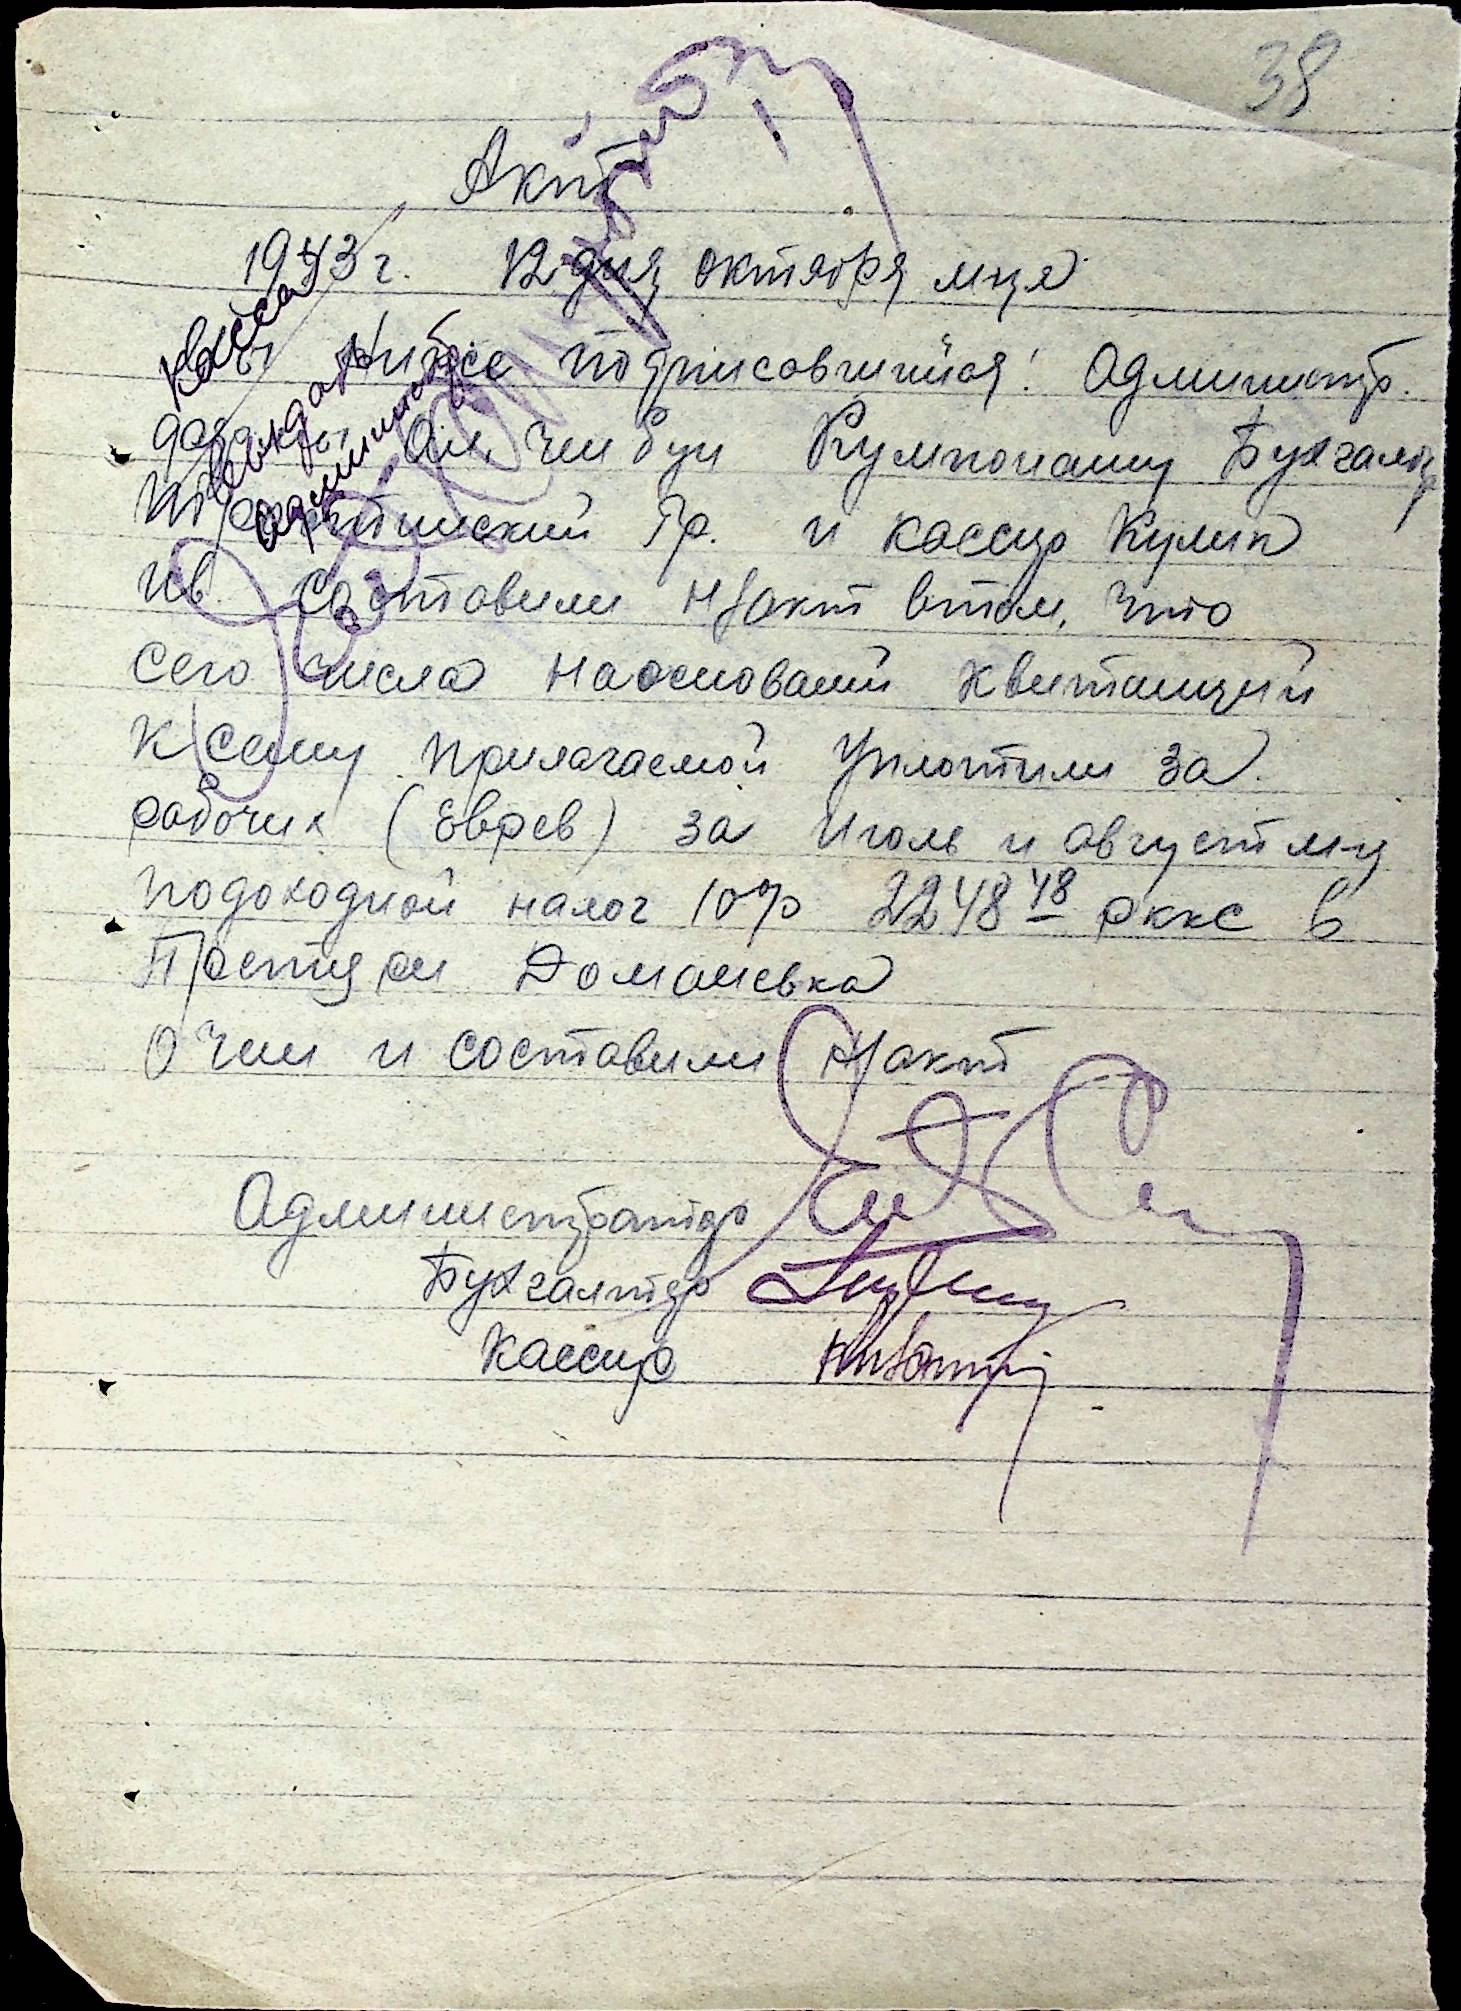 38
Акт
1943 г. 12 дня октября м-ця
Мы Ниже подписавшийся: Администр.
Ал. Бухгалтер
Гр. и кассир Кулик
Ив. составили н/акт втом, что
сего числа наосновании квитанций
к сему прилагаемой Уплотили за
рабочих (Евреев) за Июль и август м-ц
подоходной налог 10% 2248 48 рккс в
Домоневка
О чем и составили н/акт
Администратор
Бухгалтер
Кассир
Касса
администр